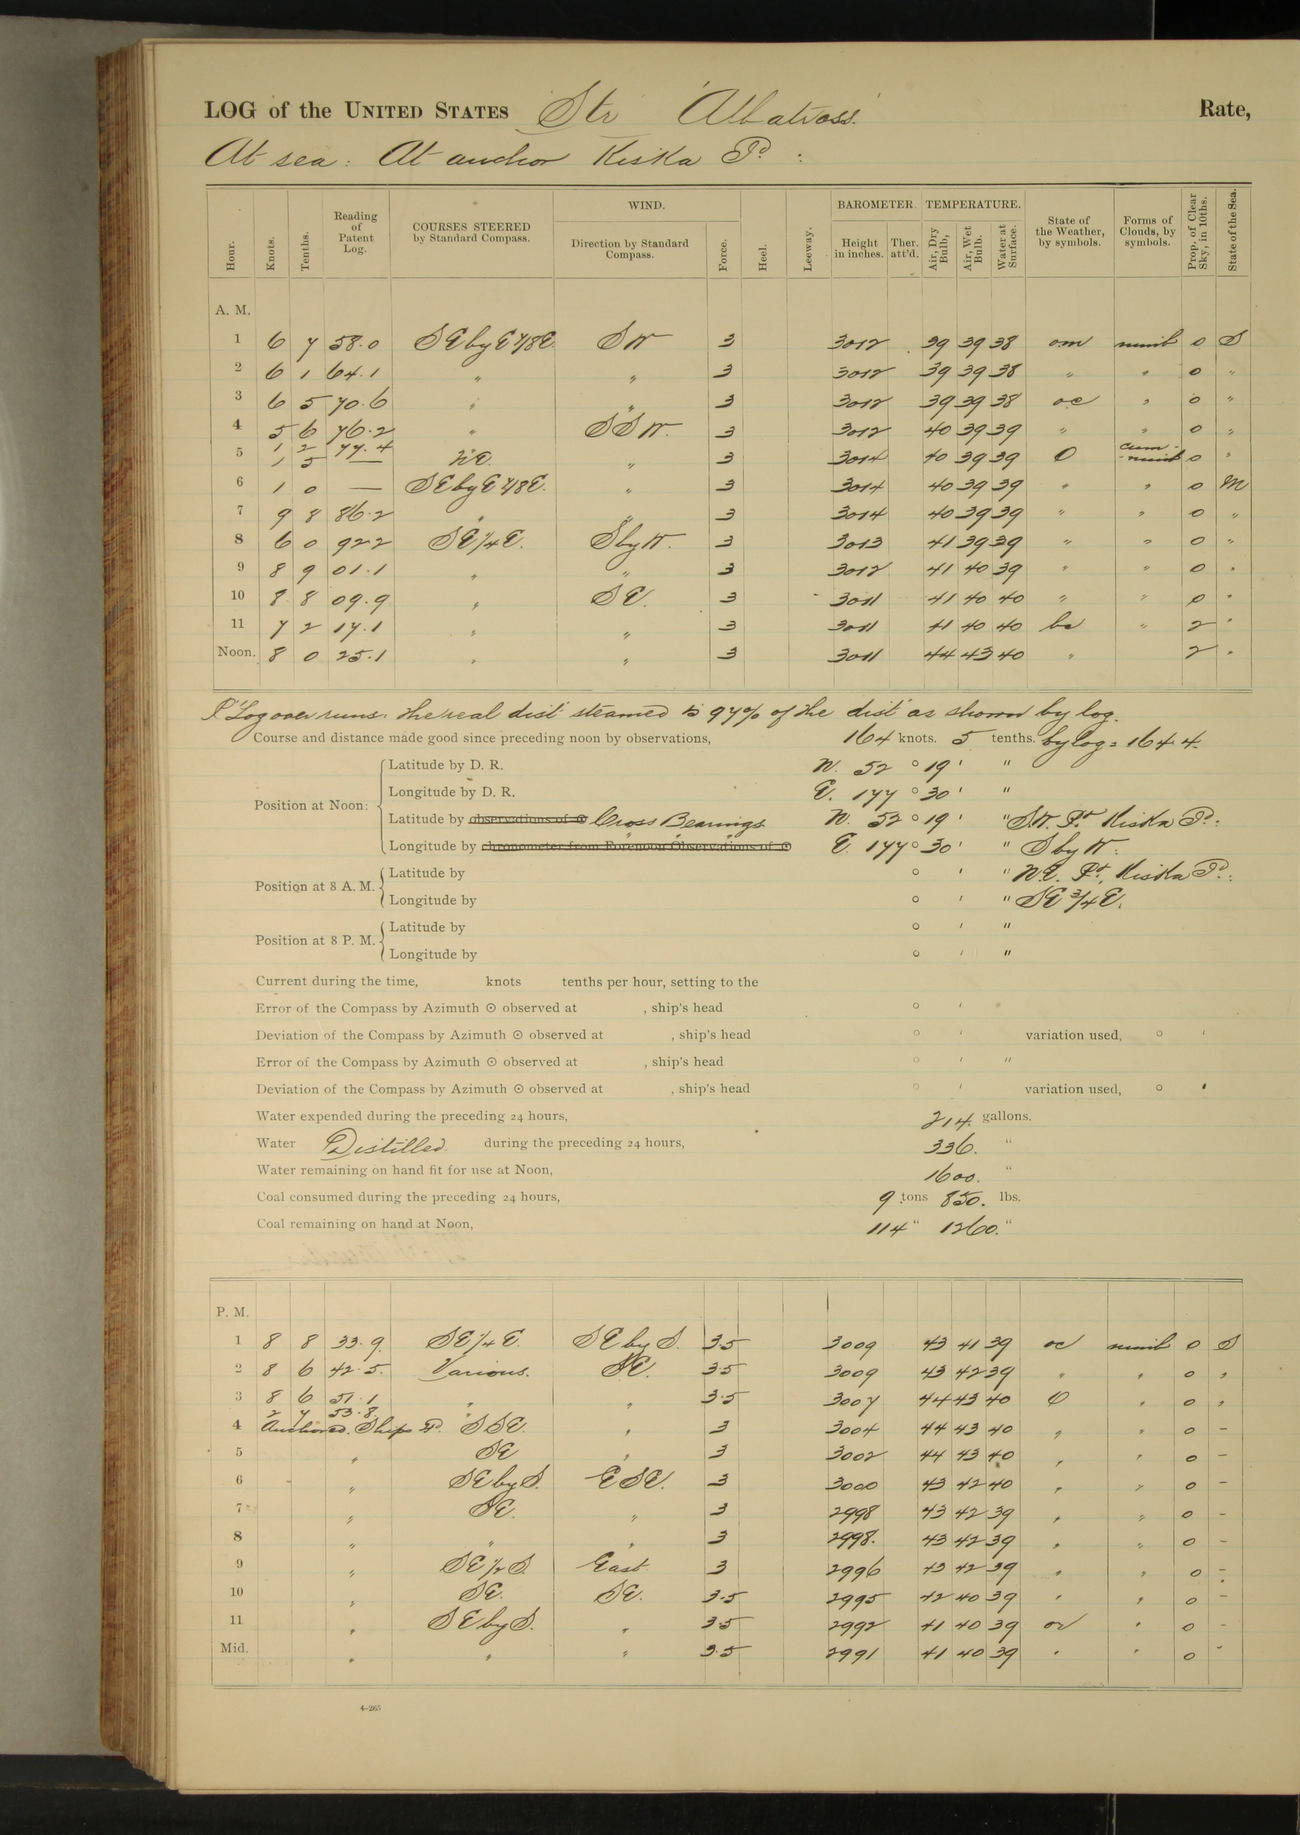 LOG of the UNITED STATES Str "Albatross." Rate,
At sea: At anchor Kiska Id:
Hour. Knots. Tenths. Reading of Patent Log. COURSES STEERED by Standard Compass. WIND. Direction by Standard Compass. Force. Heel. Leeway. BAROMETER. Height in inches. Ther. att'd. TEMPERATURE. Air, Dry Bulb, Air, Wet Bulb. Water at Surface. State of the Weather, by symbols. Forms of Clouds, by symbols. Prop. of Clear Sky, in 10ths. State of the Sea.
A. M.
1 6 7 58.0 SE by E 7/8 E. SW 3 3012 39 39 38 om nimb 0 S
2 6 1 64.1 " " 3 3012 39 39 38 " " 0 "
3 6 5 70.6 " " 3 3012 39 39 38 oc " 0 "
4 5 6 76.2 " SSW. 3 3012 40 39 39 " " 0 "
5 1 2 77.4
1 5 — " 3 3014 40 39 39 O cum-nimb 0 "
6 1 0 — SE by E 7/8 E. " 3 3014 40 39 39 " " 0 M
7 9 8 86.2 " " 3 3014 40 39 39 " " 0 "
8 6 0 922 SE 1/4 E. S by W. 3 3013 41 39 39 " " 0 "
9 8 9 01.1 " " 3 3012 41 40 39 " " 0 "
10 8 8 09.9 " SE. 3 3011 41 40 40 " " 0 "
11 7 2 17.1 " " 3 3011 41 40 40 bc " 2 "
Noon. 8 0 25.1 " " 3 3011 44 43 40 " 2 "
P. Log over runs. The real dist steamed is 97% of the dist as shown by log.
Course and distance made good since preceding noon by observations, 164 knots. 5 tenths. by log = 164.4.
Position at Noon:
Latitude by D. R. N. 52 ° 19 ' "
Longitude by D. R. E. 177 ° 30 ' "
Latitude by observations of ☉ Cross Bearings N. 52 ° 19 ' " S.W. Pt Kiska Id:
Longitude by chronometer from Forenoon Observations of ☉ " " E. 177 ° 30 ' " S by W:
Position at 8 A. M.
Latitude by ° ' " N.E. Pt. Kiska Id.:
Longitude by ° ' " SE 3/4 E.
Position at 8 P. M.
Latitude by ° ' "
Longitude by ° ' "
Current during the time, knots tenths per hour, setting to the
Error of the Compass by Azimuth ☉ observed at , ship's head ° '
Deviation of the Compass by Azimuth ☉ observed at , ship's head ° ' variation used, ° '
Error of the Compass by Azimuth ☉ observed at , ship's head ° ' "
Deviation of the Compass by Azimuth ☉ observed at , ship's head ° ' variation used, ° '
Water expended during the preceding 24 hours, 214. gallons.
Water Distilled during the preceding 24 hours, 336. "
Water remaining on hand fit for use at Noon, 1600. "
Coal consumed during the preceding 24 hours, 9 tons 850. lbs.
Coal remaining on hand at Noon, 114 " 1260. "
P. M.
1 8 8 33.9. SE 1/4 E. SE by S. 3.5 3009 43 41 39 oc nimb 0 S
2 8 6 42.5. Various. SE. 3.5 3009 43 42 39 " " 0 "
3 8 6 51.1 " " 3.5 3007 44 43 40 O " 0 "
2 7 53.8
4 Anchored. Ships Hd. SSE. " 3 3004 44 43 40 " " 0 -
5 " SE " 3 3002 44 43 40 " " 0 -
6 " SE by S. ESE. 3 3000 43 42 40 " " 0 -
7 " SE. " 3 2998 43 42 39 " " 0 -
8 " " " 3 2998. 43 42 39 " " 0 -
9 " SE 1/2 S. East 3 2996 43 42 39 " " 0 -
10 " SE. SE. 3.5 2995 42 40 39 " " 0 -
11 " SE by S. " 3.5 2992 41 40 39 " 0 -
Mid. " " " 3.5 2991 41 40 39 " " 0 "
4-265